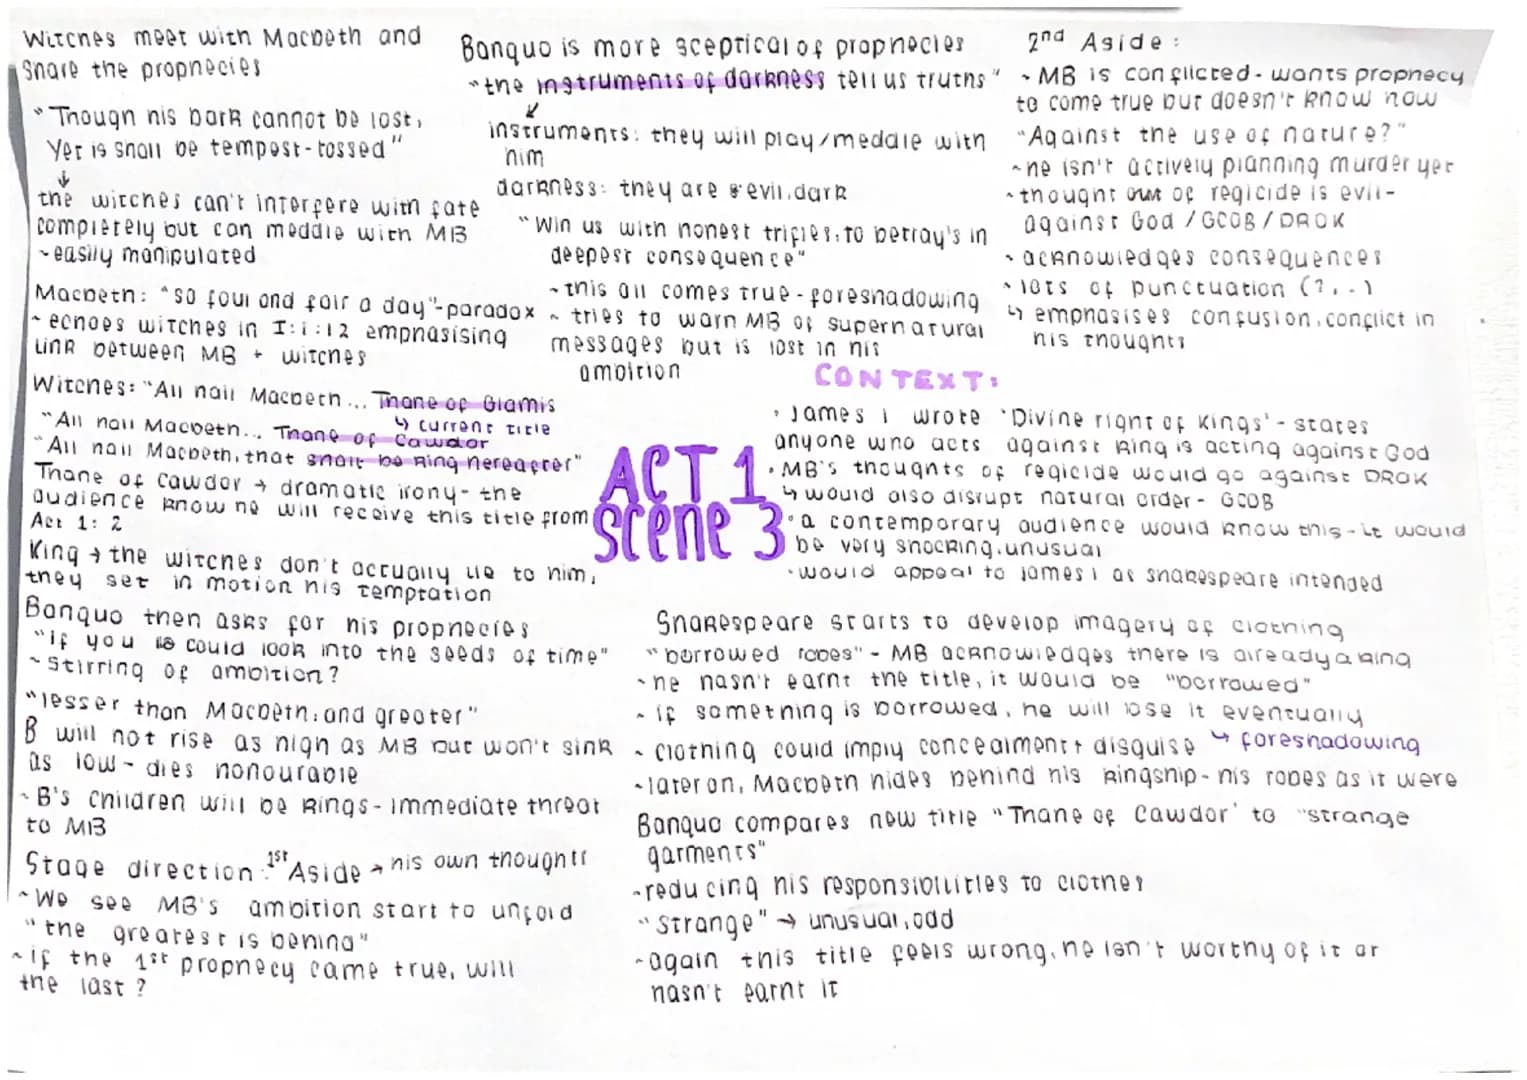 Witches meet with Macbeth and
share the prophecies
"Though his bark cannot be lost,
Yet is shall be tempest-tossed"
↓
the witches can't interfere with fate
completely but can meddle with MB
~easily manipulated
Macbeth: "so foul and fair a day"-paradox
~echoes witches in I:i:12 emphasising
link between MB + witches
Witches: "All hail Macbeth... Thane of Glamis
↳ current title
"All hail Macbeth... Thane of Cawdor
"All hail Macbeth, that shall be king hereafter"
Thane of Cawdor → dramatic irony- the
audience know he will receive this title from
Act 1: 2
King → the witches don't actually lie to him,
they set in motion his temptation
Banquo then asks for his prophecies
"if you could look into the seeds of time"
~stirring of ambition?
"lesser than Macbeth, and greater"
B will not rise as high as MB but won't sink
as low - dies honourable
~B's children will be kings - immediate threat
to MB
Stage direction: 1st Aside → his own thoughts
~We see MB's ambition start to unfold
"the greatest is behind"
~if the 1st prophecy came true, will
the last?
Banquo is more sceptical of prophecies
"the instruments of darkness tell us truths"
↙
instruments: they will play/meddle with
him
darkness: they are evil, dark
"Win us with honest trifles, to betray's in
deepest consequence"
~this all comes true - foreshadowing
~tries to warn MB of supernatural
messages but is lost in his
ambition
2nd Aside:
~MB is conflicted - wants prophecy
to come true but doesn't know how
"Against the use of nature?"
~he isn't actively planning murder yet
~thought of regicide is evil-
against God / GCOB / DROK
~acknowledges consequences
~lots of punctuation (?, . -)
↳ emphasises confusion, conflict in
his thoughts
CONTEXT:
• James I wrote 'Divine right of Kings' - states
anyone who acts against king is acting against God
• MB's thoughts of regicide would go against DROK
↳ would also disrupt natural order - GCOB
• a contemporary audience would know this - it would
be very shocking, unusual
• would appeal to James I as Shakespeare intended
ACT 1
Scene 3
Shakespeare starts to develop imagery of clothing
"borrowed robes" - MB acknowledges there is already a king
~he hasn't earnt the title, it would be "borrowed"
~if something is borrowed, he will lose it eventually
↳ foreshadowing
~clothing could imply concealment + disguise
~later on, Macbeth hides behind his kingship - his robes as it were
Banquo compares new title "Thane of Cawdor' to "strange
garments"
~reducing his responsibilities to clothes
"Strange" → unusual, odd
~again this title feels wrong, he isn't worthy of it or
hasn't earnt it